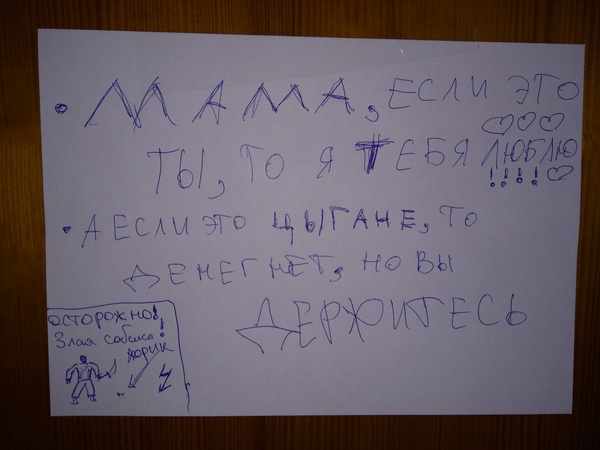 • МАМА, ЕСЛИ ЭТО
ТЫ, ТО Я ТЕБЯ ЛЮБЛЮ
!!!!
• А ЕСЛИ ЭТО ЦЫГАНЕ, ТО
ДЕНЕГ НЕТ, НО ВЫ
ДЕРЖИТЕСЬ
ОСТОРОЖНО!
Злая собака